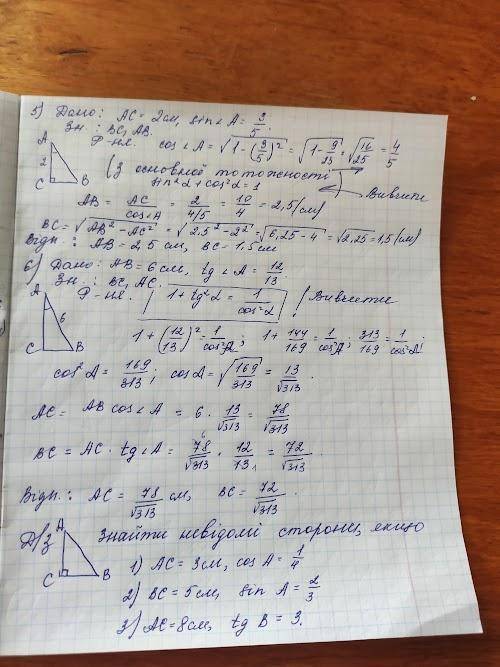 5) Дано: AC = 2см, sin∠A = 3/5.
Зн.: BC, AB.
Р-ня. cos∠A = √(1-(3/5)²) = √(1-9/25) = √(16/25) = 4/5
A
2
C B
(з основної тотожності)
sin²α + cos²α = 1
Вивчити
AB = AC/cos∠A = 2/(4/5) = 10/4 = 2,5 (см)
BC = √(AB² - AC²) = √(2,5² - 2²) = √(6,25 - 4) = √2,25 = 1,5 (см)
Відп.: AB = 2,5 см, BC = 1,5см
6) Дано: AB = 6см, tg∠A = 12/13.
Зн.: BC, AC.
Р-ня. 1 + tg²α = 1/cos²α ! Вивчити
A
6
C B
1 + (12/13)² = 1/cos²A; 1 + 144/169 = 1/cos²A; 313/169 = 1/cos²A;
cos²A = 169/313; cosA = √(169/313) = 13/√313.
AC = AB cos∠A = 6 · 13/√313 = 78/√313
BC = AC · tg∠A = 78/√313 · 12/13 = 72/√313.
6
1
Відп.: AC = 78/√313 см, BC = 72/√313.
Д/з Знайти невідомі сторони, якщо
A
C B
1) AC = 3см, cos A = 1/4
2) BC = 5см, sin A = 2/3
3) AC = 8см, tg B = 3.